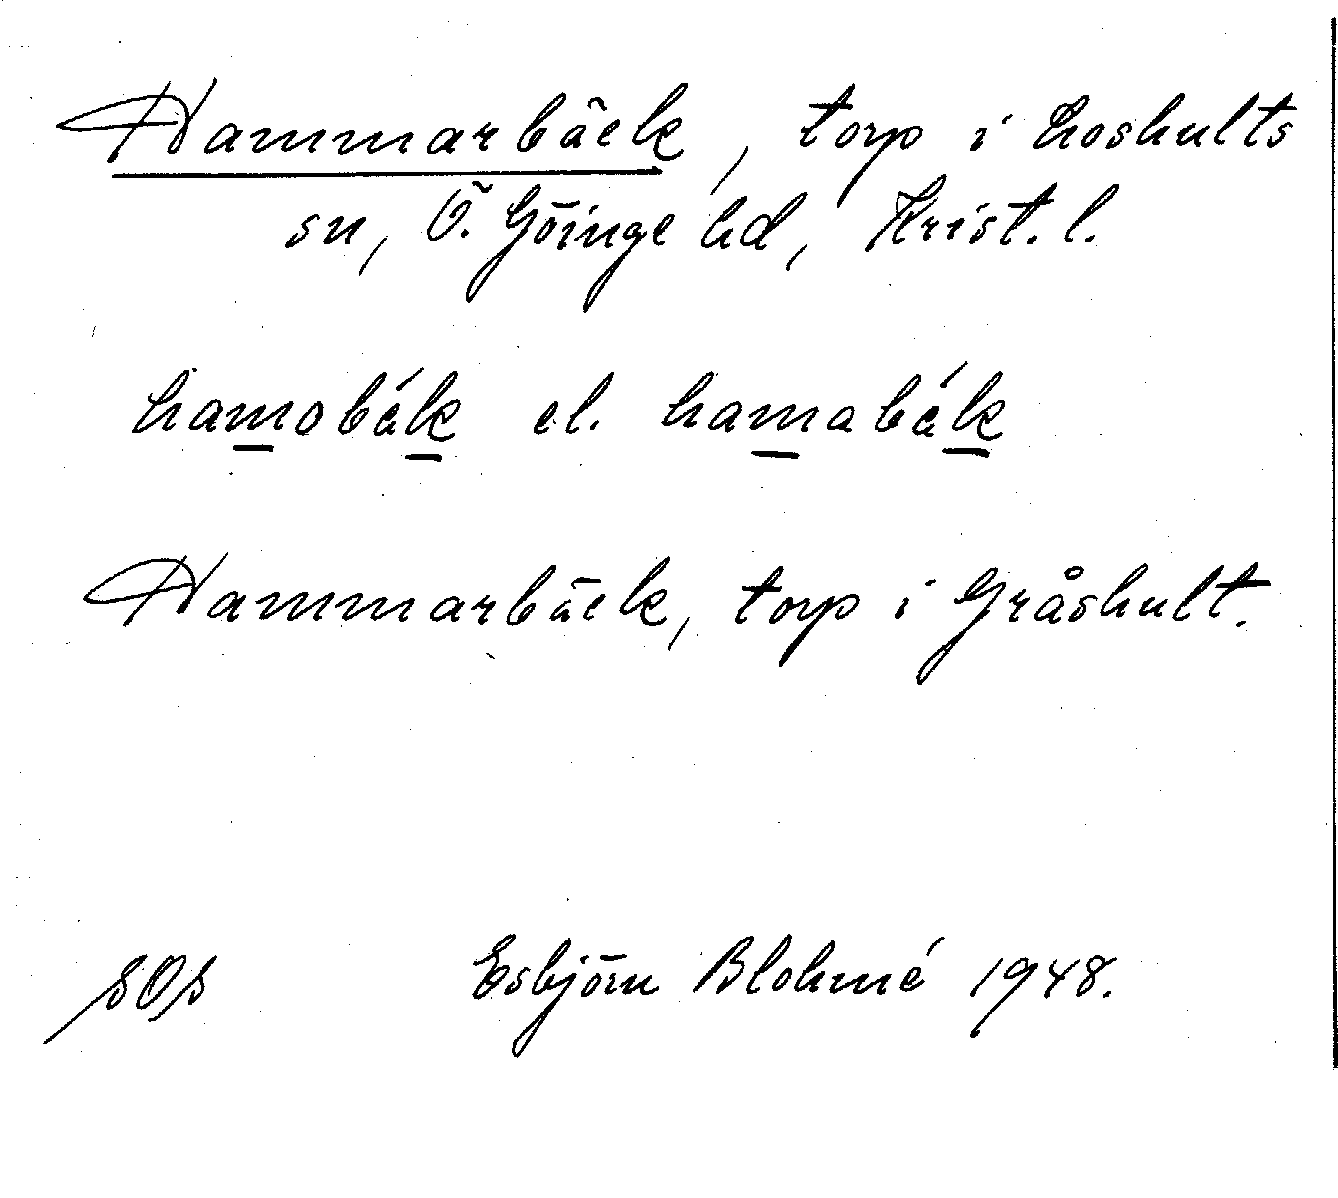 Hammarbäck, torp i Loshults
sn, Ö. Göinge hd, Krist. l.
hamobák el. hamabák
Hammarbäck, torp i Gråshult.
SOS Esbjörn Blohmé 1948.